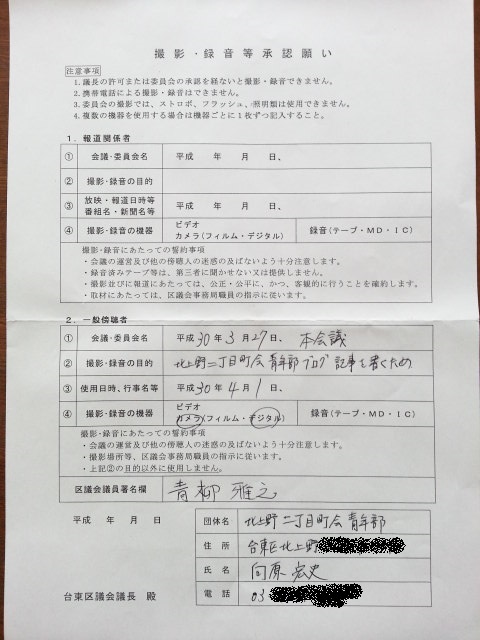 撮影・録音等承認願い
注意事項
1.議長の許可または委員会の承認を経ないと撮影・録音できません。
2.携帯電話による撮影・録音はできません。
3.委員会の撮影では、ストロボ、フラッシュ、照明類は使用できません。
4.複数の機器を使用する場合は機器ごとに1枚ずつ記入すること。
1．報道関係者
① 会議・委員会名 平成 年 月 日、
② 撮影・録音の目的
③ 放映・報道日時等 平成 年 月 日、
番組名・新聞名等
④ 撮影・録音の機器 ビデオ 録音（テープ・MD・IC）
カメラ（フィルム・デジタル）
撮影・録音にあたっての誓約事項
・会議の運営及び他の傍聴人の迷惑の及ばないよう十分注意します。
・録音済みテープ等は、第三者に聞かせない又は提供しません。
・撮影並びに報道にあたっては、公正・公平に、かつ、客観的に行うことを確約します。
・取材にあたっては、区議会事務局職員の指示に従います。
2．一般傍聴者
① 会議・委員会名 平成30年3月27日、本会議
② 撮影・録音の目的 北上野二丁目町会青年部ブログ記事を書くため
③ 使用日時、行事名等 平成30年4月1日、
④ 撮影・録音の機器 ビデオ 録音（テープ・MD・IC）
カメラ（フィルム・デジタル）
撮影・録音にあたっての誓約事項
・会議の運営及び他の傍聴人の迷惑の及ばないよう十分注意します。
・撮影場所等、区議会事務局職員の指示に従います。
・上記②の目的以外に使用しません。
区議会議員署名欄 青柳雅之
平成 年 月 日
団体名 北上野二丁目町会青年部
住所 台東区北上野
氏名 向原宏史
電話 03
台東区議会議長 殿